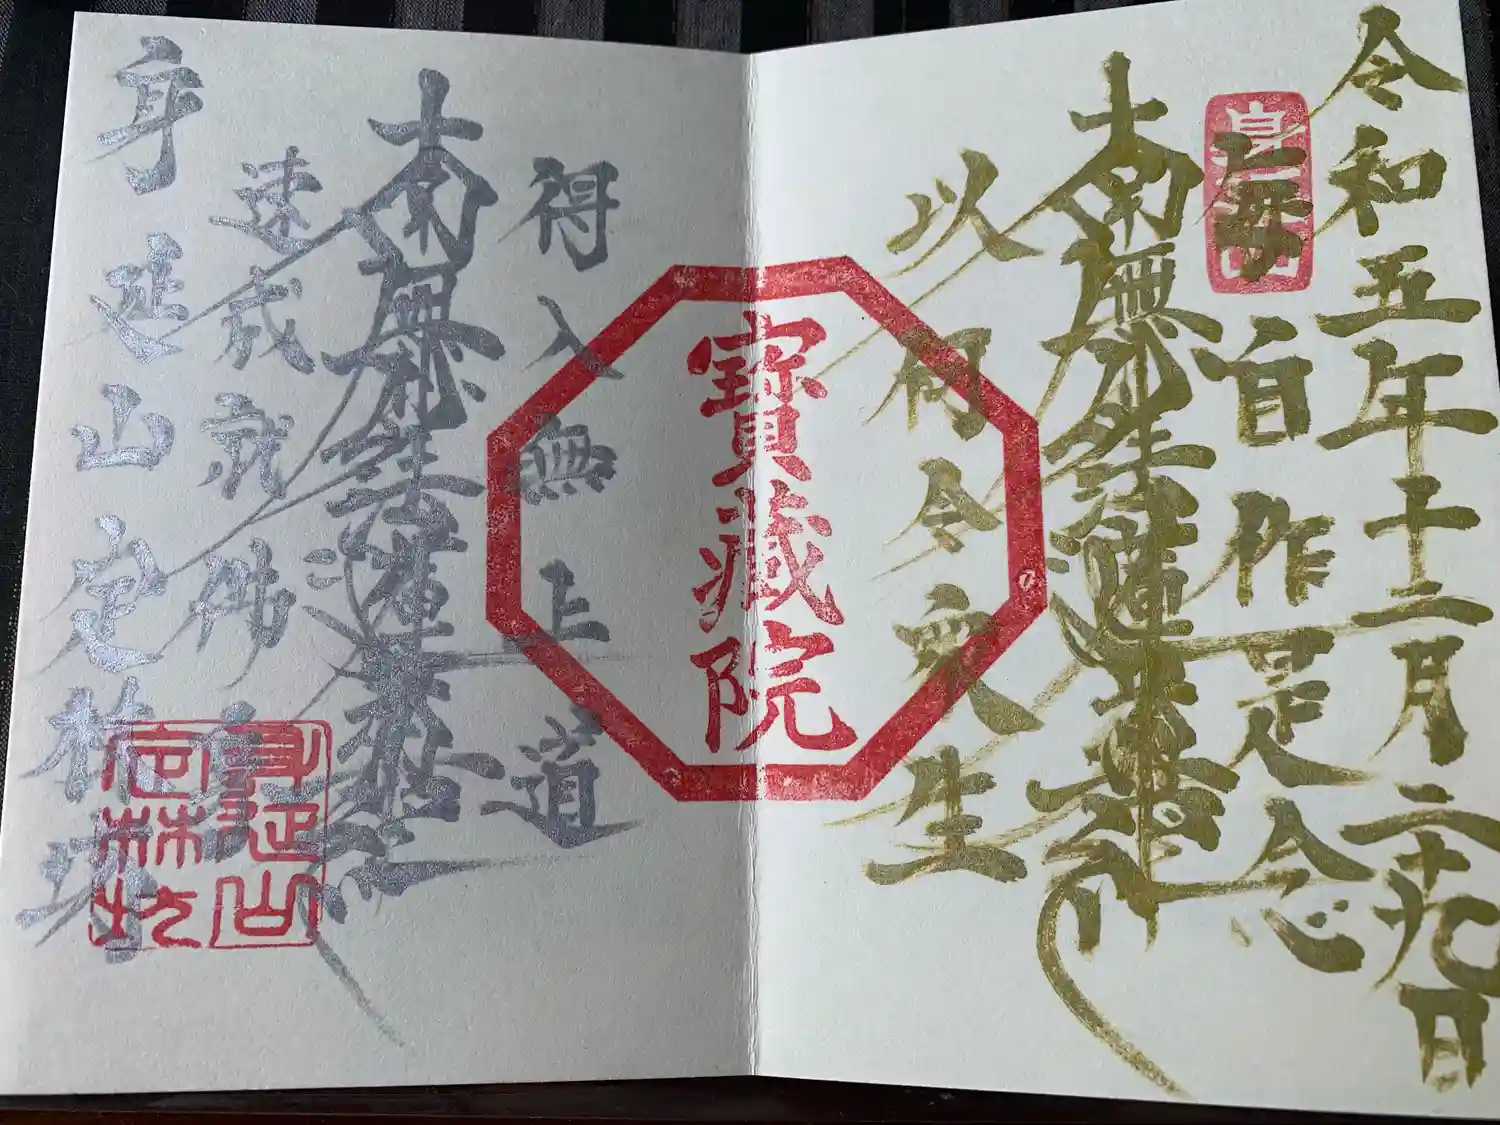 令和五年十二月二十九日
毎自作是念
南無妙法蓮華經
以何令衆生
寶藏院
得入無上道
南無妙法蓮華經
速成就佛身
身延山定林坊
身延山
定林坊